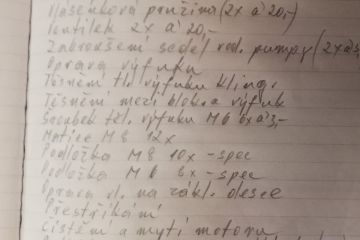 Nasenková pružina (2x á 20,-)
Ventilek 2x á 20,-
Zabroušení sedel vod. pumpy (2x á 3,-
Oprava výfuku
Těsnění tl. výfuku klingr.
Těsnění mezi blok a výfuk
Šroubek tel. výfuku M6 6x á 3,-
Matice M8 12x
Podložka M8 10x - spec
Podložka M6 6x - spec
Oprava vl. na zákl. desce
Přestříkání
Čistění a mytí motoru